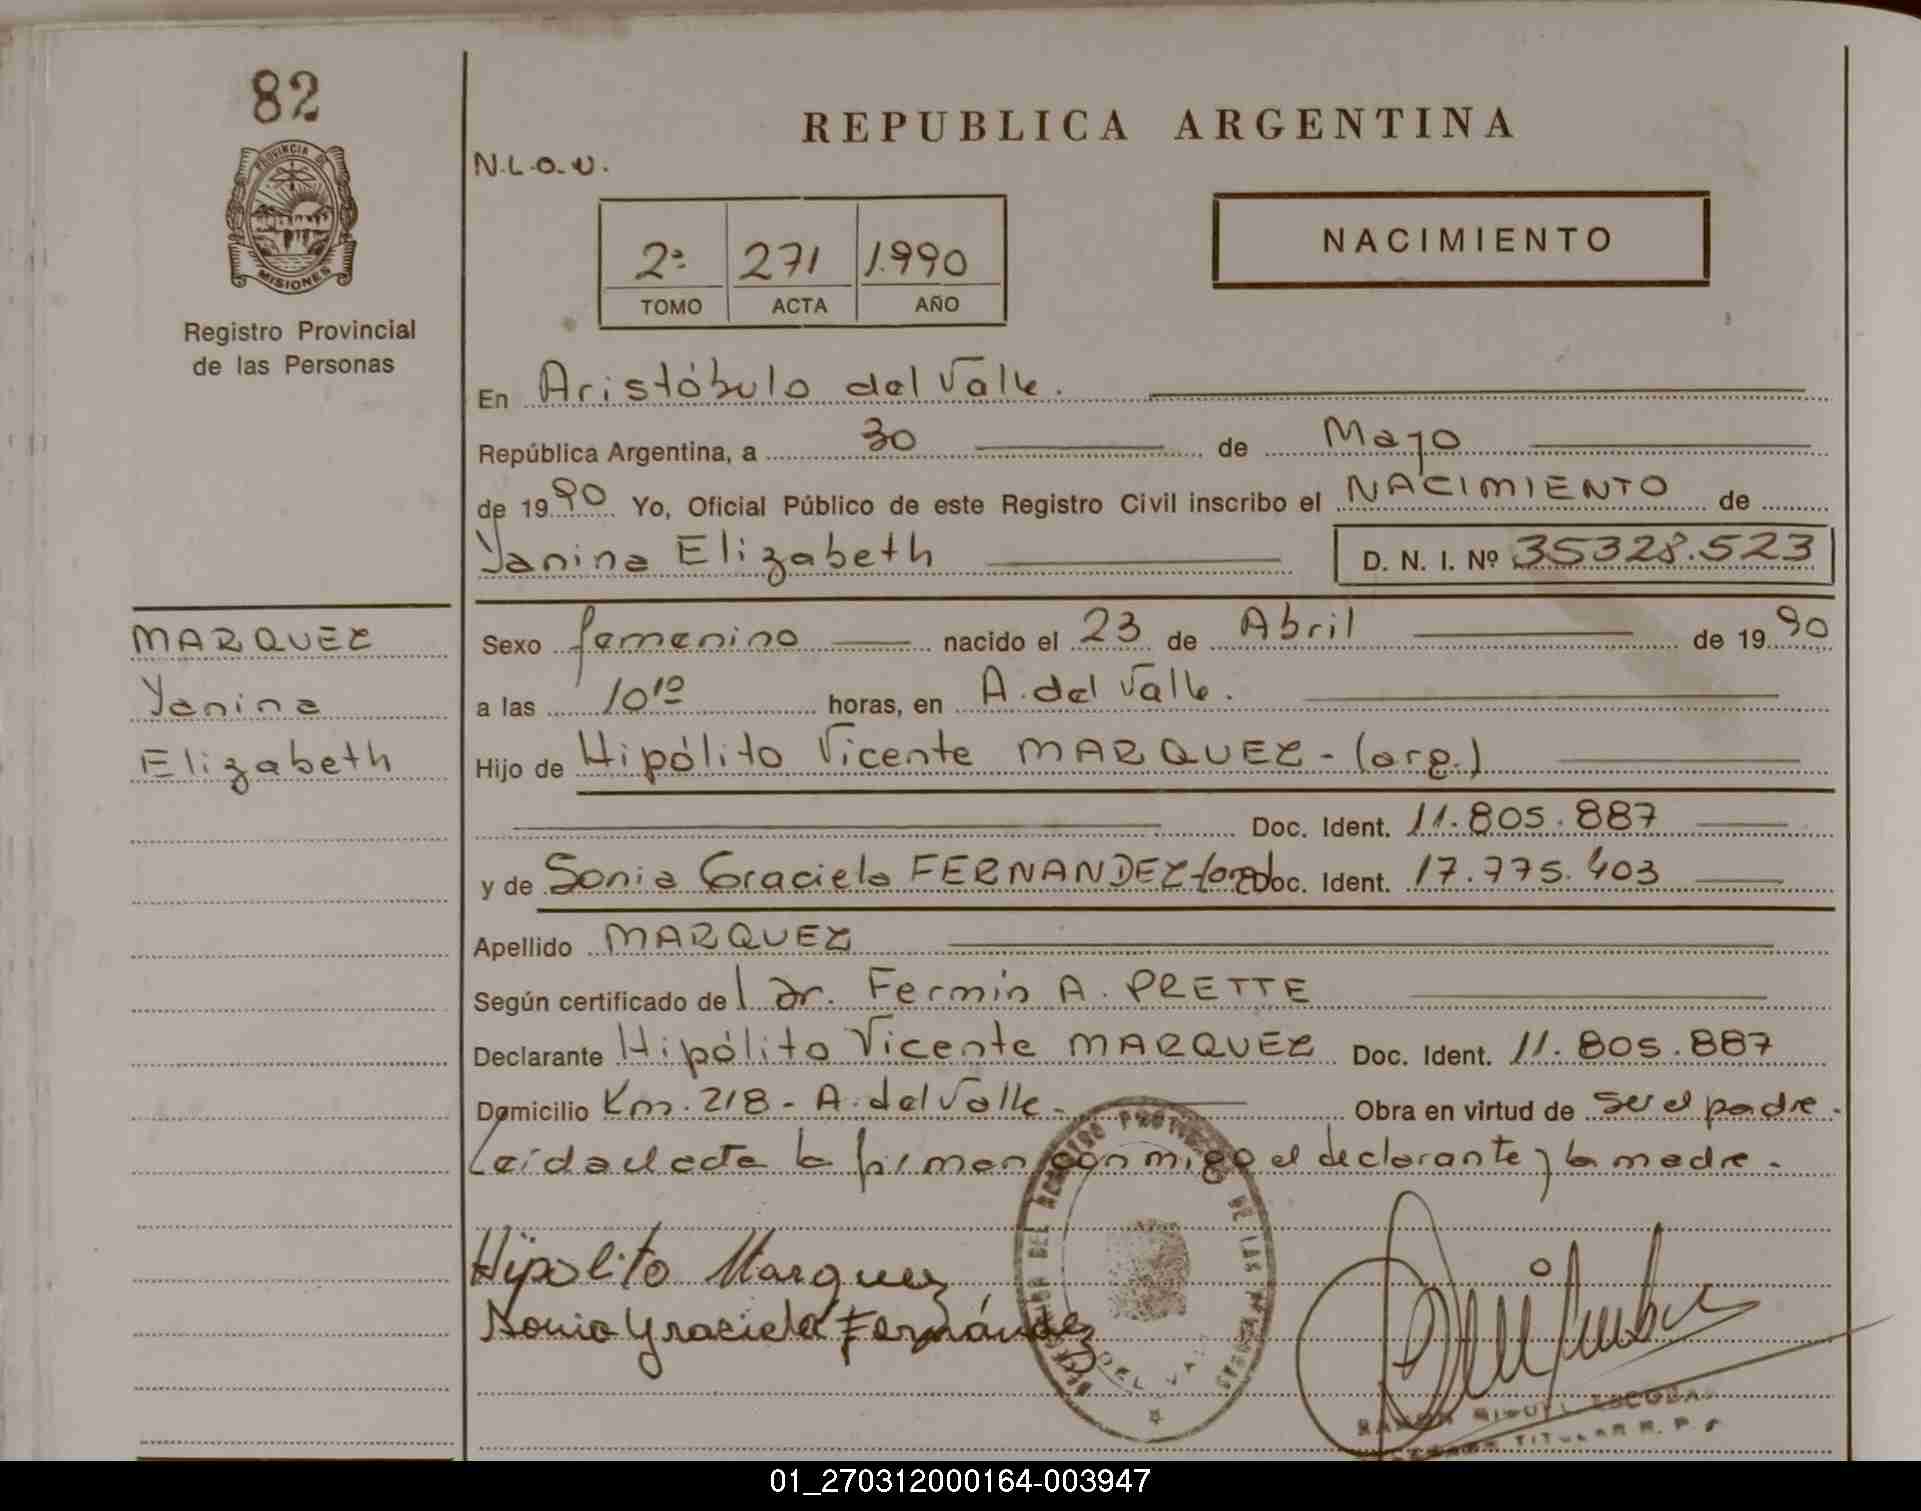 82
PROVINCIA DE
MISIONES
Registro Provincial
de las Personas
MARQUEZ
Yanina
Elizabeth
REPUBLICA ARGENTINA
N.L.O.U.
2ª 271 1.990
TOMO ACTA AÑO
NACIMIENTO
En Aristóbulo del Valle.
República Argentina, a 30 de Mayo
de 1990 Yo, Oficial Público de este Registro Civil inscribo el NACIMIENTO de
Yanina Elizabeth D. N. I. Nº 35328.523
Sexo femenino nacido el 23 de Abril de 1990
a las 10¹⁰ horas, en A. del Valle.
Hijo de Hipólito Vicente MARQUEZ - (arg.)
Doc. Ident. 11.805.887
y de Sonia Graciela FERNANDEZ (arg.) Doc. Ident. 17.775.403
Apellido MARQUEZ
Según certificado del Dr. Fermín A. PRETTE
Declarante Hipólito Vicente MARQUEZ Doc. Ident. 11.805.887
Domicilio Km. 218 - A. del Valle - Obra en virtud de ser el padre.
Leída el acta la firman conmigo el declarante y la madre.
Hipolito Marquez
Sonia Graciela Fernández
DEL REGISTRO PROVINCIAL DE LAS PERSONAS
DEL VALLE
RAMON MIGUEL ESCOBAR
TITULAR R. P. P.
01_270312000164-003947